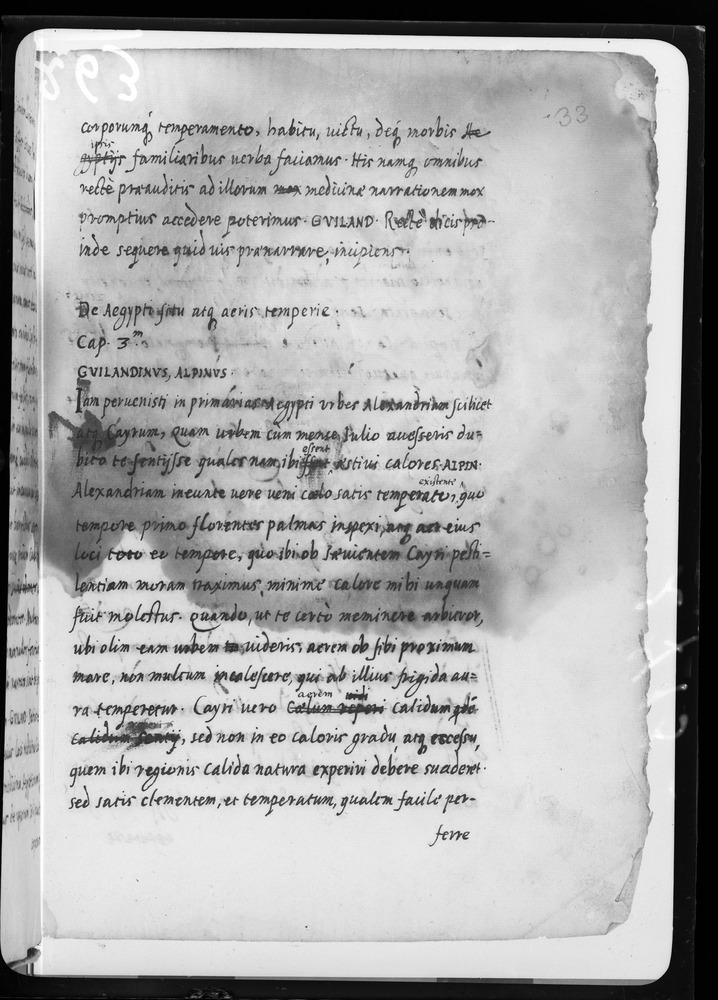 33
corporumq́ temperamento, habitu, uictu, deq́ morbis Ae
ipsis
gyptijs familiaribus uerba faciamus. His namq́ omnibus
rectè præauditis ad illorum mox medicinæ narrationem mox
promptius accedere poterimus. GVILAND. Rectè dicis pro-
inde sequere quid uis prænarrare, incipiens.
De Aegypti situ atq́ aeris temperie.
Cap. 3.m
GVILANDINVS, ALPINVS.
Iam peruenisti in primarias Aegypti vrbes Alexandriam scilicet
atq́ Cayrum, quam urbem cum mense Julio auesseris du=
essent
bito te sentijsse quales nam ibi æstiui calores. ALPIN.
existente
Alexandriam ineunte uere ueni cœlo satis temperato, quo
tempore primo florentes palmas inspexi, atq́ aer eius
loci toto eo tempore, quo ibi ob sæuientem Cayri pesti=
lentiam moram traximus, minime calore mihi unquam
fuit molestus. quando, ut te certò meminere arbitror,
ubi olim eam urbem uideris, aerem ob sibi proximum
mare, non multum incalescere, qui ab illius frigida au=
aerem uidi
ra temperetur. Cayri uero Cœlum reperi calidum
calidum, sed non in eo caloris gradu, atq́ excessu,
quem ibi regionis calida natura experiri debere suaderet.
sed satis clementem, et temperatum, qualem facile per-
ferre